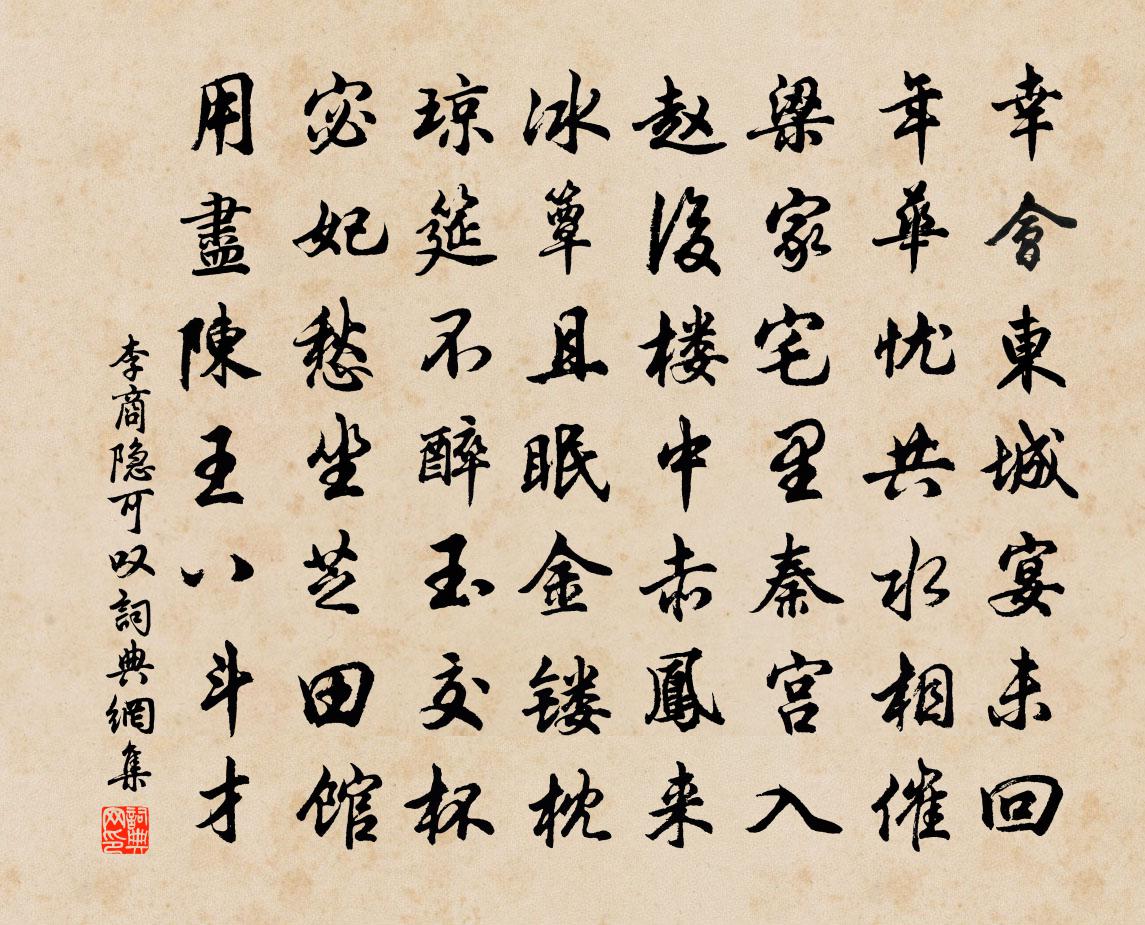 幸會東城宴未回
年華忧共水相催
梁家宅里秦宫入
赵後楼中赤鳳来
冰簟且眠金镂枕
琼筵不醉玉交杯
宓妃愁坐芝田馆
用盡陳王八斗才
李商隐可叹詞典網集
詞典网印